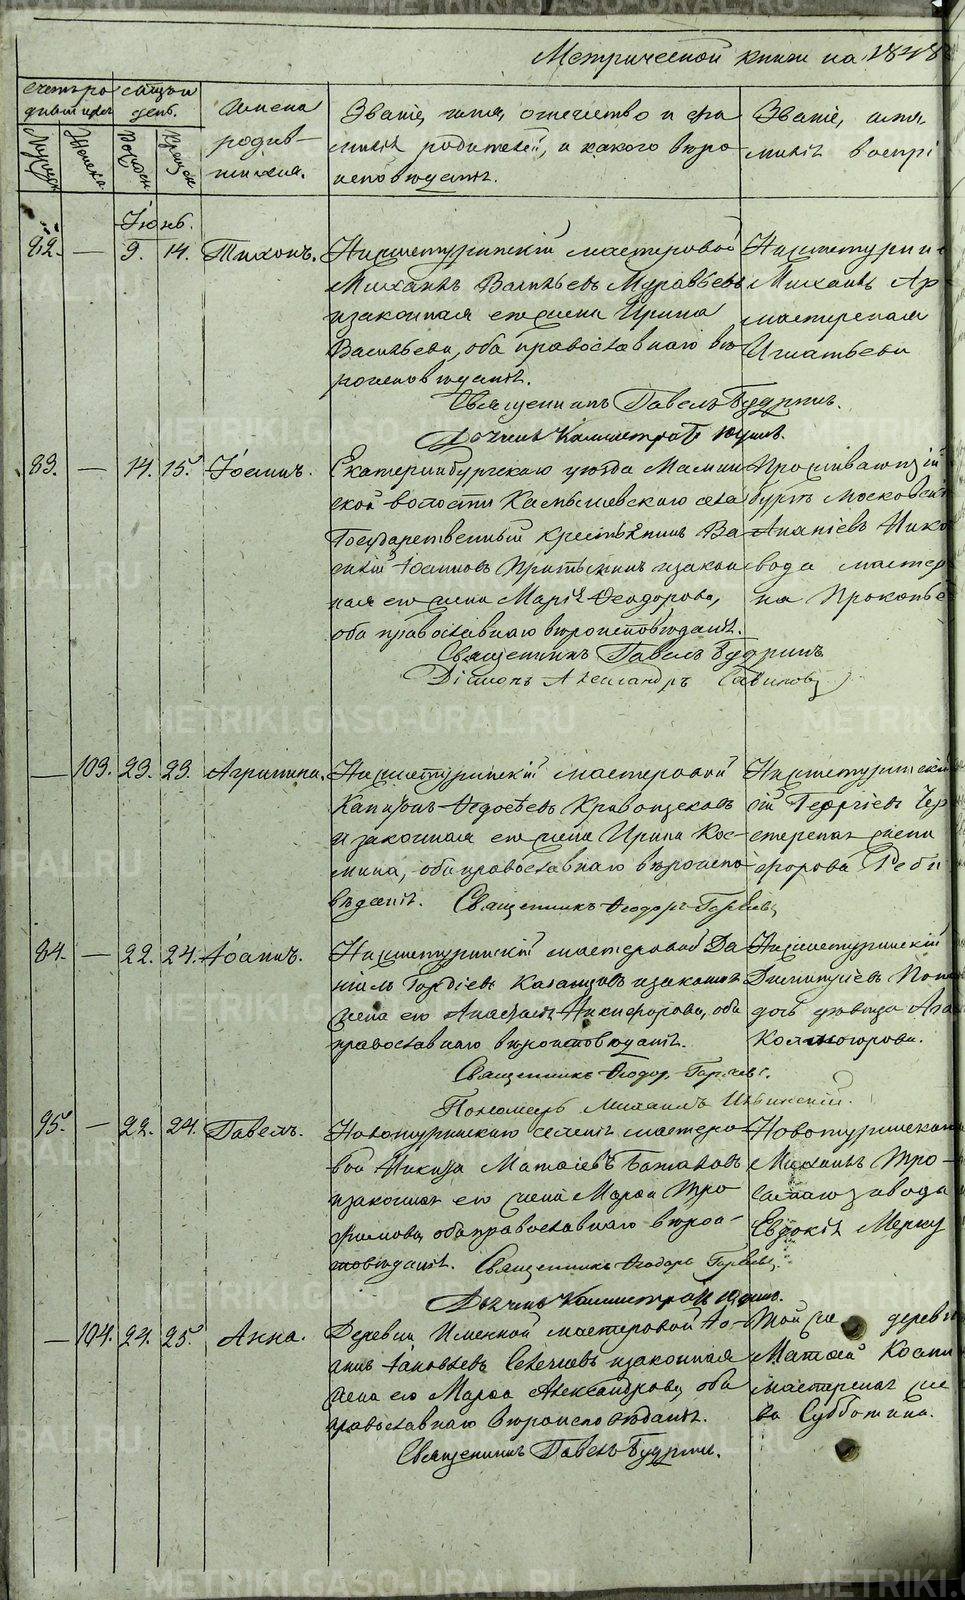 Метрической книги на 1848
Счетъ родившихся
Мѣсяцъ и день.
Имена родившихся.
Званіе, имя, отчество и фамилія родителей, и какого вѣроисповѣданія.
Званіе, имя,
милія воспрі
Мужеска
Женска
Рожден
Крещен
Іюнь.
82. — 9. 14. Тихонъ.
Нижнетуринскій мастеровой
Михаилъ Васильевъ Муравьевъ
и законная его жена Ирина
Васильева, оба православнаго вѣ
роисповѣданія.
Священникъ Павелъ Будринъ.
Дьячекъ Калистратъ Юдинъ.
Нижнетурин
Михаилъ Ар
мастерская
Игнатьева
83. — 14. 15. Іоаннъ.
Екатеринбургскаго уѣзда Мамин
ской волости села
Государственный крестьянинъ Ва
силій Іоанновъ и закон
ная его жена Марія Ѳеодорова,
оба православнаго вѣроисповѣданія.
Священникъ Павелъ Будринъ
Діаконъ Александръ
Проживающій
бургъ Московск
Ананіевъ Нико
вода мастер
на Прокопье
— 103. 23. 23. Агрипина.
Нижнетуринскій мастеровой
Капитонъ Ѳедосѣевъ Кривощековъ
и законная его жена Ирина Кос-
мина, оба православнаго вѣроиспо
вѣданія. Священникъ Ѳеодоръ
Нижнетуринскі
ій Георгіевъ Чер
стерская жена
форова Ряби
84. — 22. 24. Іоаннъ.
Нижнетуринскій мастеровой Да
ніилъ Гордѣевъ Казанцовъ и законная
жена его Анастасія Никифорова, оба
православнаго вѣроисповѣданія.
Священникъ Ѳеодоръ
Пономарь Михаилъ Ильинскій.
Нижнетуринскій
Димитріевъ Поп
дочь дѣвица Ага
Колмогорова.
95. — 22. 24. Павелъ.
Новотуринскаго селенія мастеро-
вой Никита Матѳіевъ Баташовъ
и законная его жена Марѳа Тро
фимова, оба православнаго вѣрои-
сповѣданія. Священникъ Ѳеодоръ
Дьячекъ Калистратъ Юдинъ.
Новотуринскаго
Михаилъ Тро-
скаго завода
Евдокія Мерку
— 104. 24. 25. Анна.
Деревни Именной мастеровой Іо-
аннъ Іаковлевъ и законная
жена его Марѳа Александрова, оба
православнаго вѣроисповѣданія.
Священникъ Павелъ Будринъ.
Той же деревни
Матѳей Косми
мастерская же
ва Субботина.
METRIKI.GASO-URAL.RU